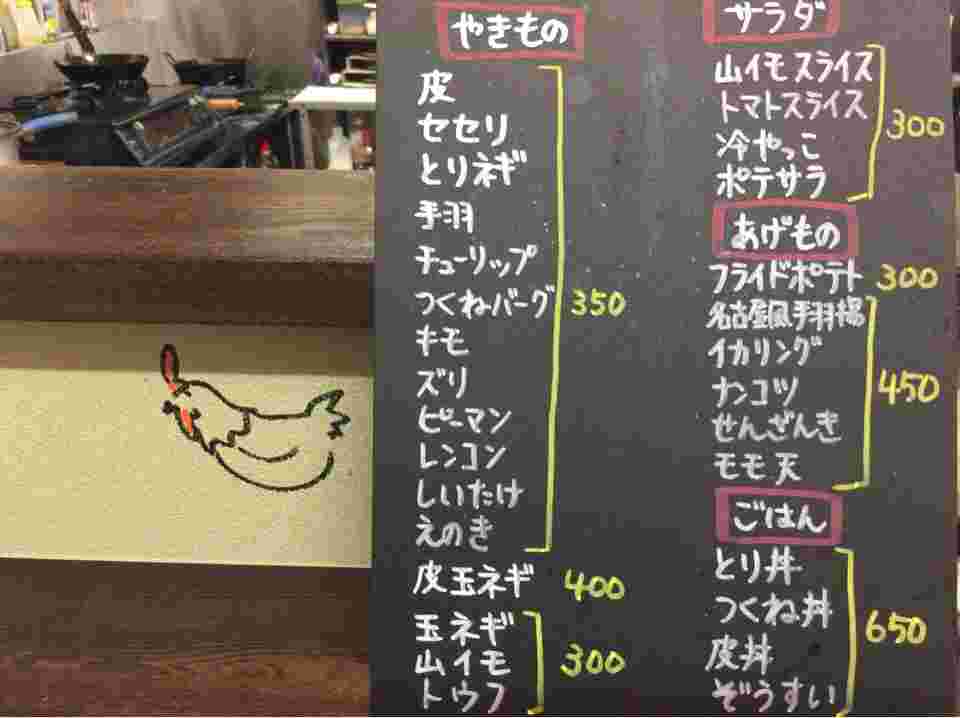 やきもの
皮
セセリ
とりネギ
手羽
チューリップ
つくねバーグ
キモ
ズリ
ピーマン
レンコン
しいたけ
えのき
350
皮玉ネギ 400
玉ネギ
山イモ
トウフ
300
サラダ
山イモスライス
トマトスライス
冷やっこ
ポテサラ
300
あげもの
フライドポテト 300
名古屋風手羽揚
イカリング
ナンコツ
せんざんき
モモ天
450
ごはん
とり丼
つくね丼
皮丼
ぞうすい
650